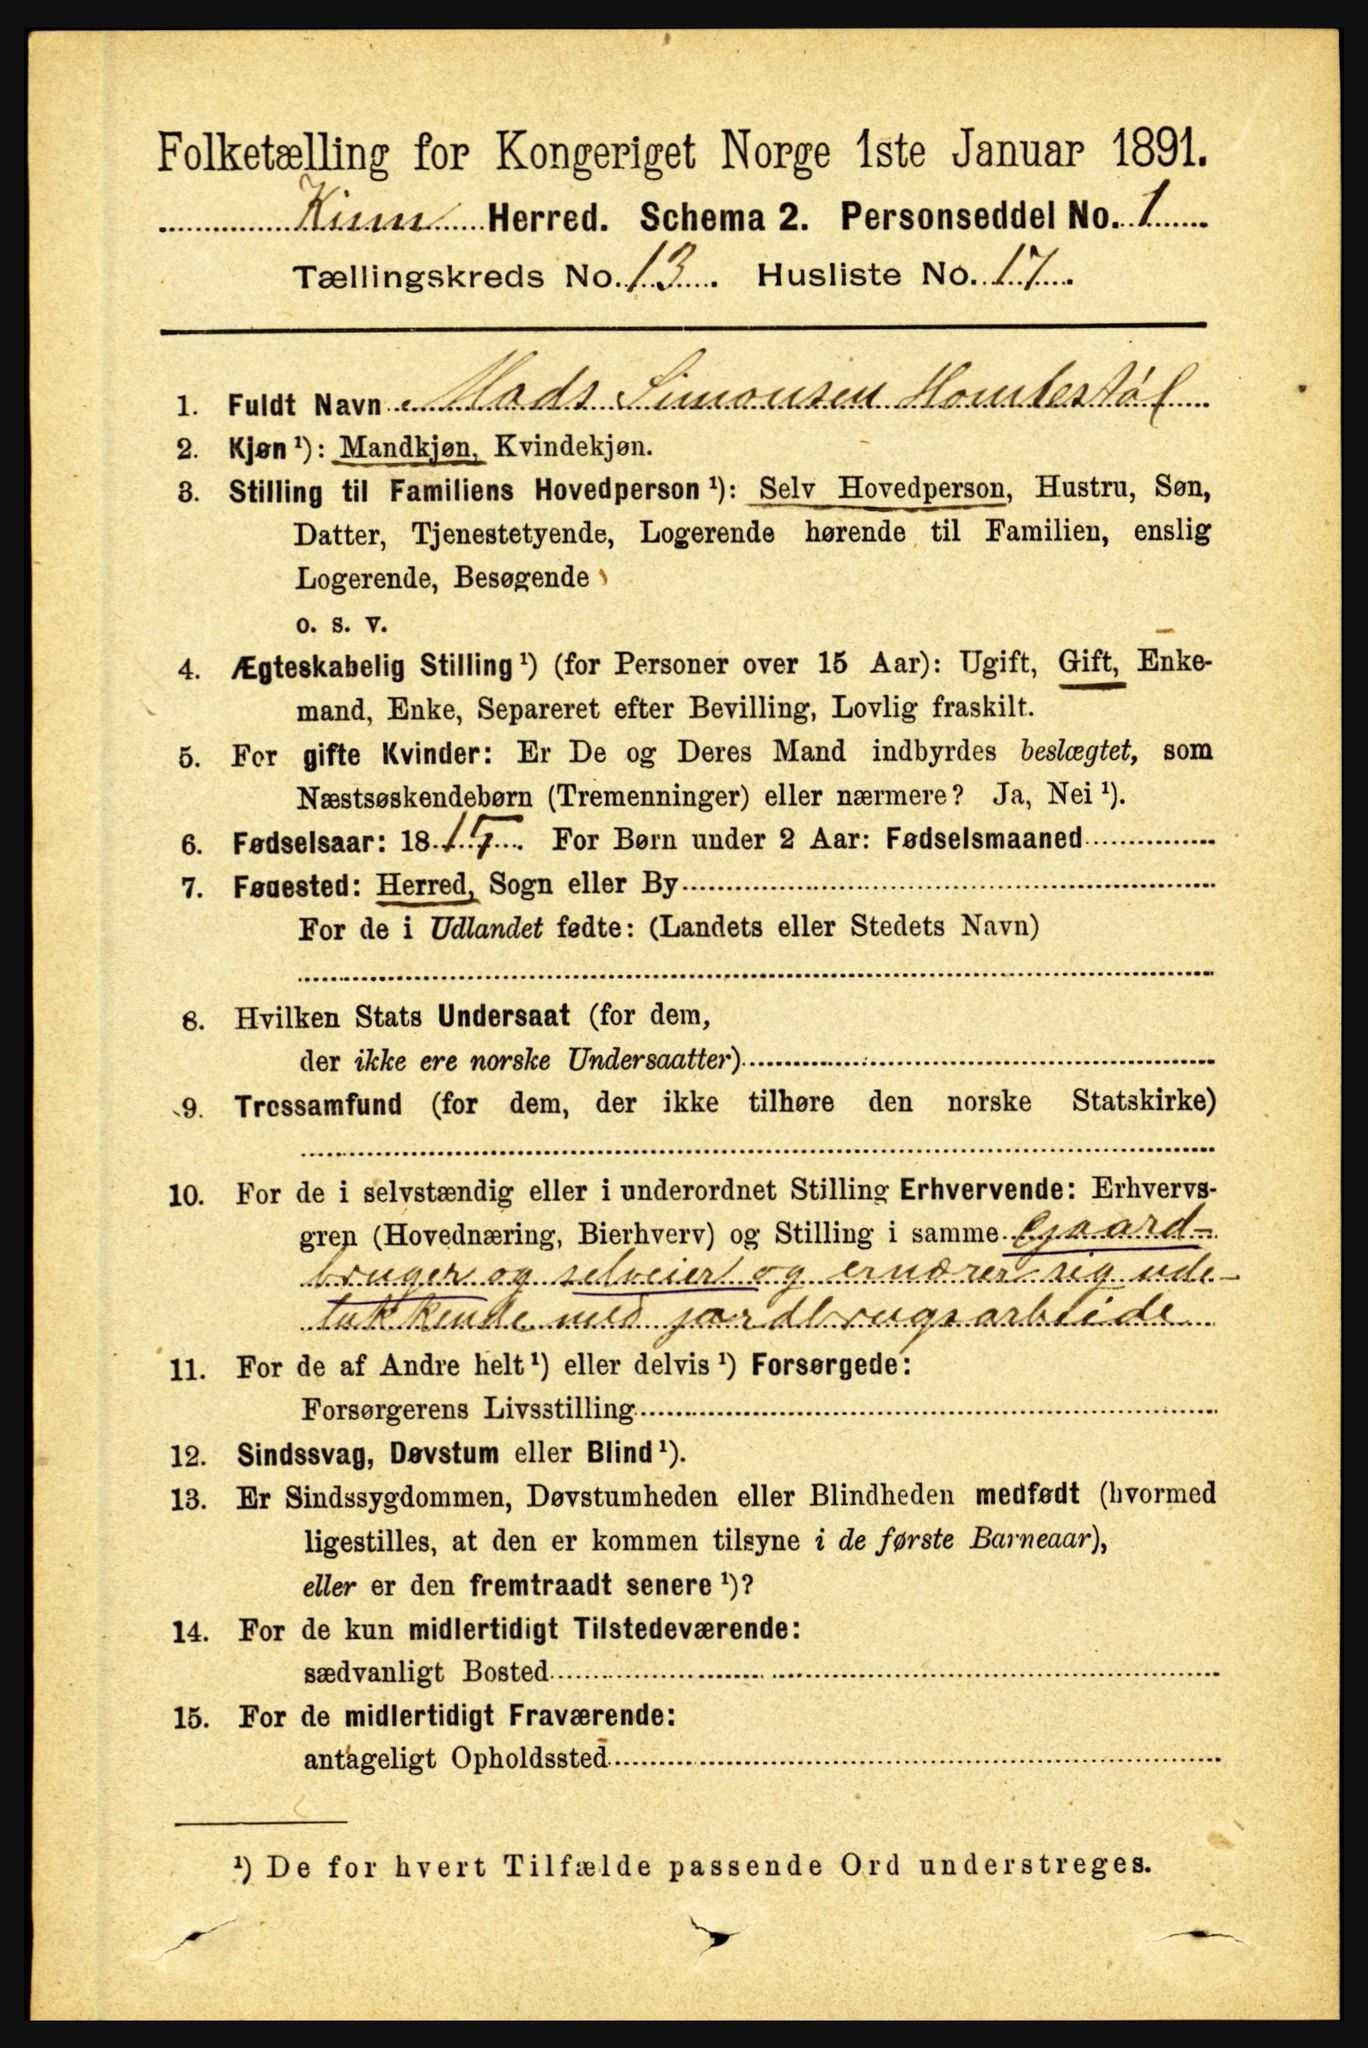 Folketælling for Kongeriget Norge 1ste Januar 1891.
Kinn Herred. Schema 2. Personseddel No. 1
Tællingskreds No. 13. Husliste No. 17.
1. Fuldt Navn Mads Simonsen Hombestøl
2. Kjøn ¹): Mandkjøn, Kvindekjøn.
3. Stilling til Familiens Hovedperson ¹): Selv Hovedperson, Hustru, Søn,
Datter, Tjenestetyende, Logerende hørende til Familien, enslig
Logerende, Besøgende
o. s. v.
4. Ægteskabelig Stilling ¹) (for Personer over 15 Aar): Ugift, Gift, Enke-
mand, Enke, Separeret efter Bevilling, Lovlig fraskilt.
5. For gifte Kvinder: Er De og Deres Mand indbyrdes beslægtet, som
Næstsøskendebørn (Tremenninger) eller nærmere? Ja, Nei ¹).
6. Fødselsaar: 18 For Børn under 2 Aar: Fødselsmaaned
7. Fødested: Herred, Sogn eller By
For de i Udlandet fødte: (Landets eller Stedets Navn)
8. Hvilken Stats Undersaat (for dem,
der ikke ere norske Undersaatter)
9. Trossamfund (for dem, der ikke tilhøre den norske Statskirke)
10. For de i selvstændig eller i underordnet Stilling Erhvervende: Erhvervs-
gren (Hovednæring, Bierhverv) og Stilling i samme Gaard-
bruger og selveier og ernærer sig ude-
lukkende med jordbrugsarbeide
11. For de af Andre helt ¹) eller delvis ¹) Forsørgede:
Forsørgerens Livsstilling
12. Sindssvag, Døvstum eller Blind ¹).
13. Er Sindssygdommen, Døvstumheden eller Blindheden medfødt (hvormed
ligestilles, at den er kommen tilsyne i de første Barneaar),
eller er den fremtraadt senere ¹)?
14. For de kun midlertidigt Tilstedeværende:
sædvanligt Bosted
15. For de midlertidigt Fraværende:
antageligt Opholdssted
¹) De for hvert Tilfælde passende Ord understreges.